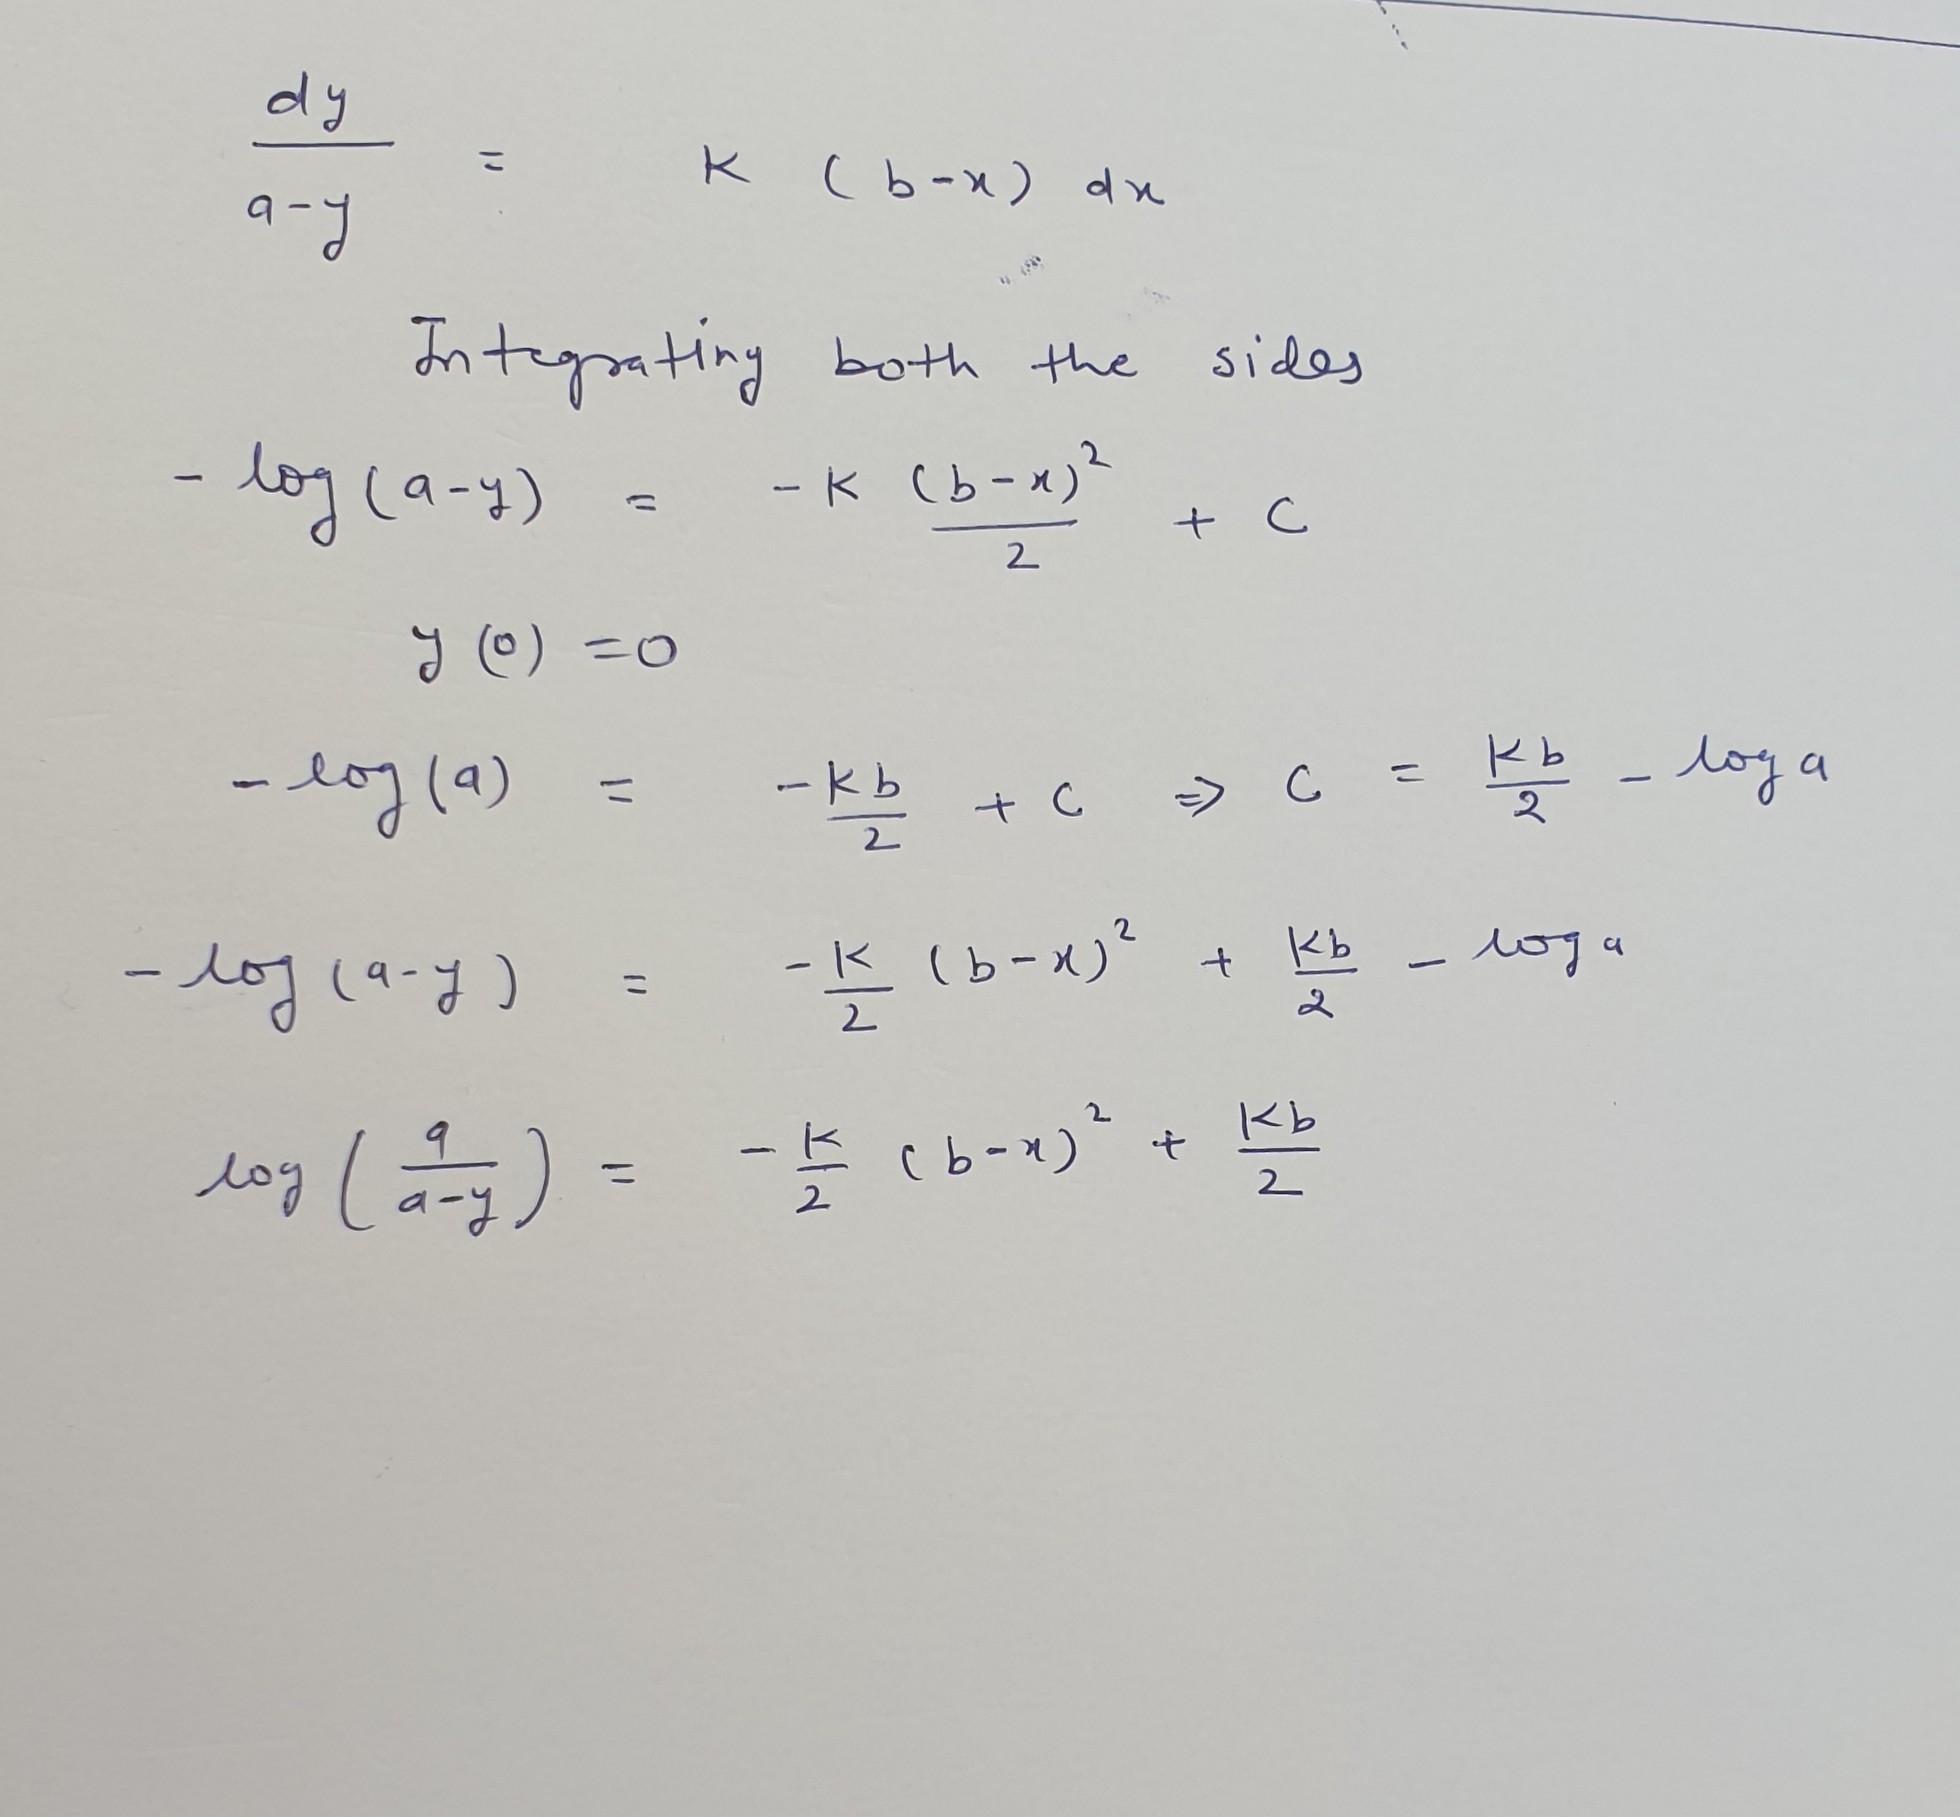 dy/(a-y) = K (b-x) dx
Integrating both the sides
- log(a-y) = -K (b-x)²/2 + C
y(0) =0
- log(a) = -Kb/2 + C ⇒ C = Kb/2 - log a
- log(a-y) = -K/2 (b-x)² + Kb/2 - log a
log (a/(a-y)) = -K/2 (b-x)² + Kb/2